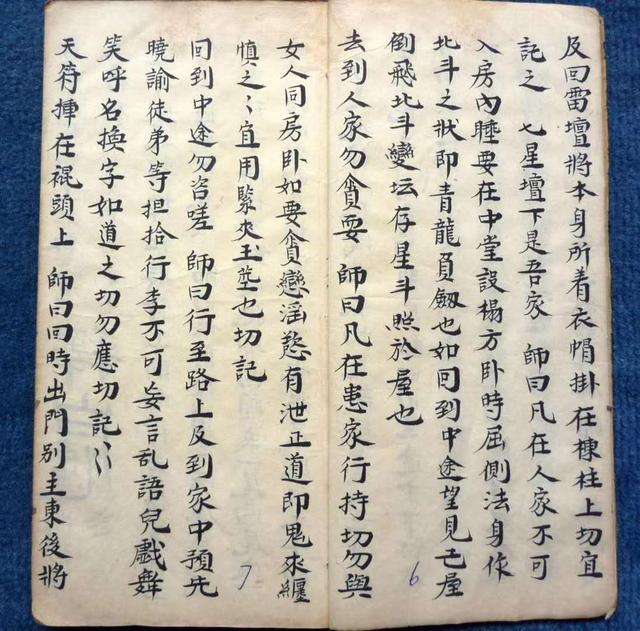 及回雷壇將本身所着衣帽掛在棟柱上切宜
記之 七星壇下是吾家 師曰凡在人家不可
入房內睡要在中堂設榻方卧時屈側法身作
北斗之狀即青龍負劔也如回到中途望見屋
倒飛北斗變坛存星斗照於屋也
去到人家勿貪耍 師曰凡在患家行持切勿與
6
女人同房卧如要貪戀滛慾有泄正道即鬼來纏
慎之〻宜用緊夾玉莖也切記
回到中途勿咨嗟 師曰行至路上及到家中預先
曉諭徒弟等担拾行李不可妄言乱語兒戲舞
笑呼名換字如道之切勿應切記〻
天符揷在裩頭上 師曰回時出門别主東後將
7